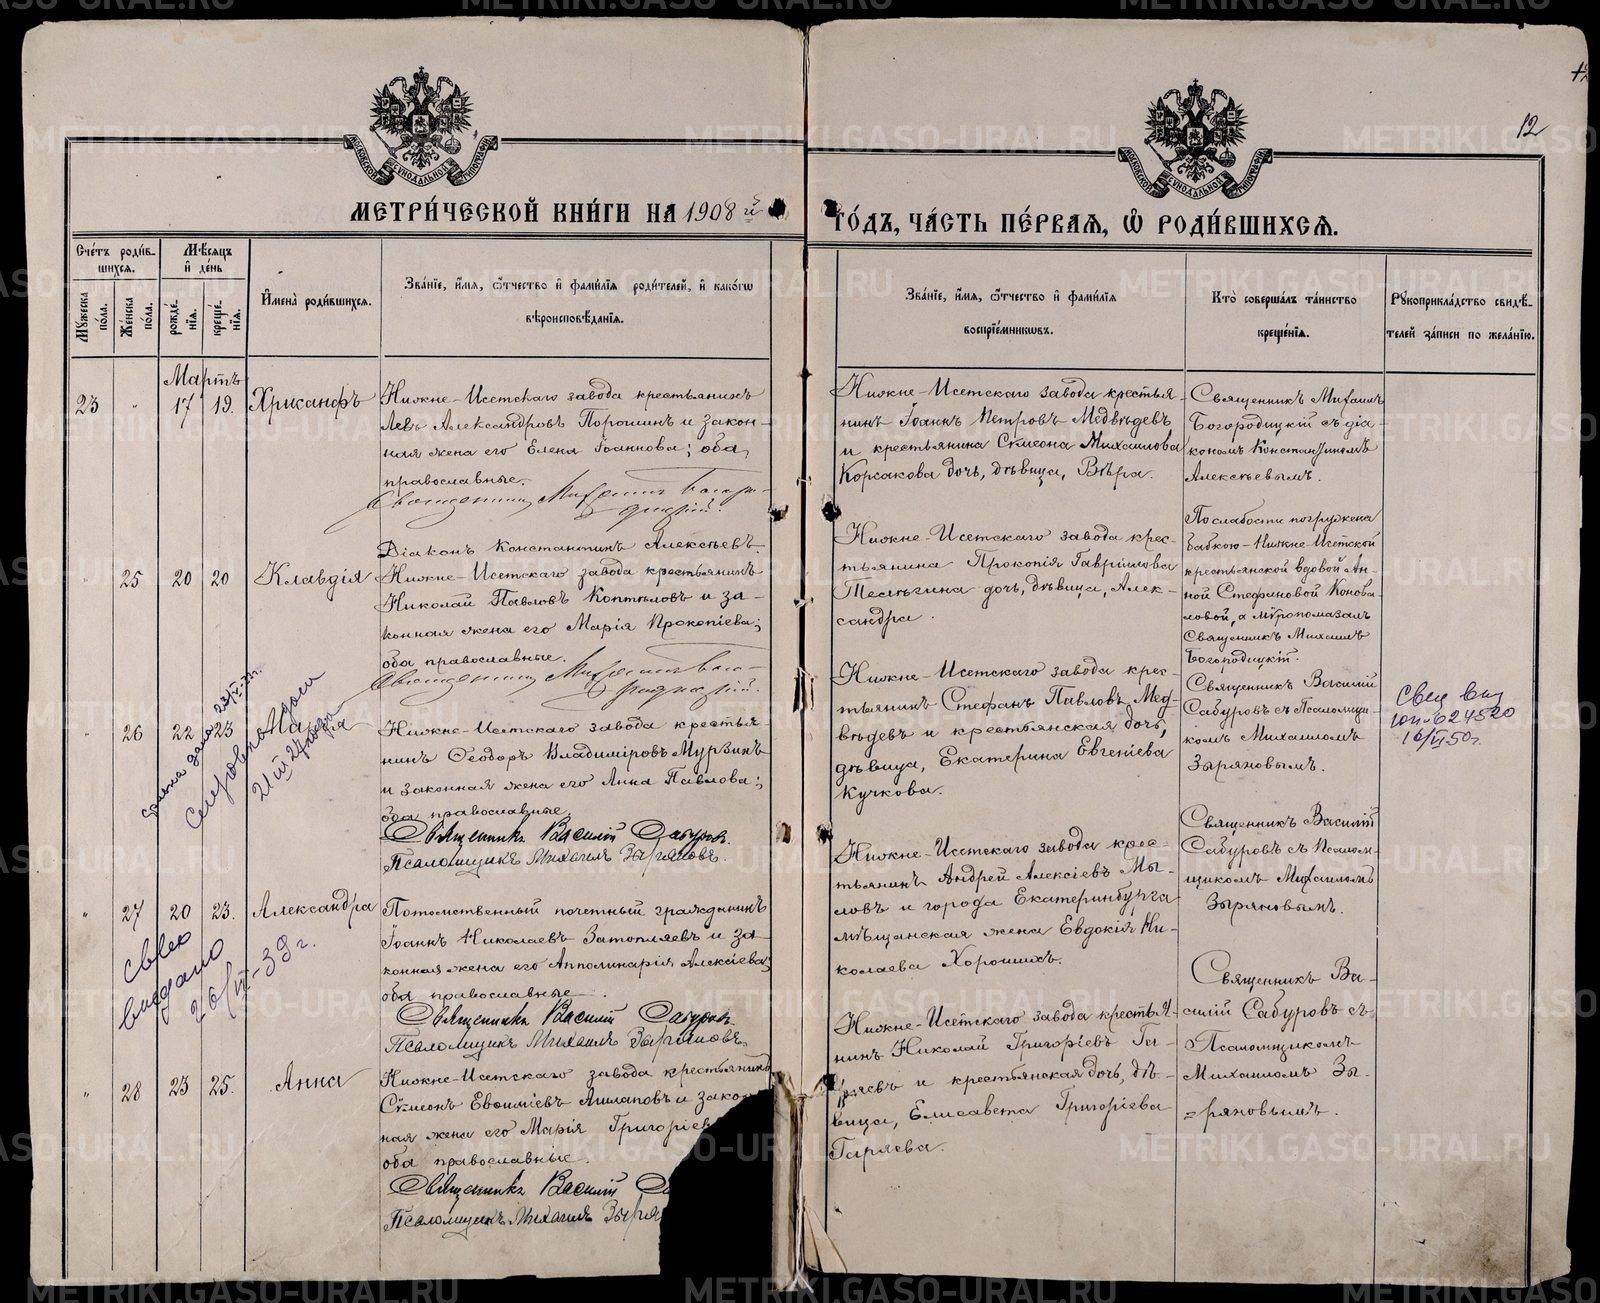 12
МЕТРИ́ЧЕСКОЙ КНИ́ГИ НА 1908 й
ГО́ДЪ, ЧА́СТЬ ПЕ́РВАЯ, Ѿ РОДИ́ВШИХСЯ.
Сче́тъ роди́в-
шихся.
Мѣсяцъ
и де́нь
Му́жеска по́ла.
Же́нска по́ла.
рожде́-
нїя.
креще́-
нїя.
Имена̀ роди́вшихся.
Зва́нїе, и́мя, ѻ́тчество и фами́лїя роди́телей, и како́гѡ
вѣроисповѣ́данїя.
Зва́нїе, и́мя, ѻ́тчество и фами́лїя
воспрїе́мникѡвъ.
Кто̀ соверша́лъ та́инство
креще́нїя.
Рꙋкоприкла́дство свидѣ́-
телей за́писи по жела́нїю.
Мартъ
23 " 17 19. Хрисанфъ
Нижне-Исетскаго завода крестьянинъ
Левъ Александровъ Порошинъ и закон-
ная жена его Елена Іоаннова; оба
православные.
Священникъ Михаилъ Богоро-
дицкій.
Діаконъ Константинъ Алексѣевъ.
Нижне-Исетскаго завода крестья-
нинъ Іоаннъ Петровъ Медвѣдевъ
и крестьянина Сѵмеона Михаилова
Корсакова дочь, дѣвица, Вѣра.
Священникъ Михаилъ
Богородицкій съ діа-
кономъ Константиномъ
Алексѣевымъ.
" 25 20 20 Клавдія
Нижне-Исетскаго завода крестьянинъ
Николай Павловъ Коптѣловъ и за-
конная жена его Марія Прокопіева;
оба православные.
Священникъ Михаилъ Бого-
родицкій.
Нижне-Исетскаго завода крес-
тьянина Прокопія Гавріилова
Телѣгина дочь, дѣвица, Алек-
сандра.
По слабости погружена
бабкою-Нижне-Исетской
крестьянской вдовой Ан-
ной Стефановой Конова-
ловой, а мѵропомазалъ
Священникъ Михаилъ
Богородицкій.
" 26 22 23
Нижне-Исетскаго завода крестья-
нинъ Ѳеодоръ Владиміровъ Мурзинъ
и законная жена его Анна Павлова;
оба православные.
Священникъ Василій Сабуровъ.
Псаломщикъ Михаилъ Зыряновъ.
Нижне-Исетскаго завода крес-
тьянинъ Стефанъ Павловъ Мед-
вѣдевъ и крестьянская дочь,
дѣвица, Екатерина Евгеніева
Кучкова.
Священникъ Василій
Сабуровъ съ Псаломщи-
комъ Михаиломъ
Зыряновымъ.
юп-624520
16/VI 50г.
" 27 20 23. Александра
свид
выдано
26/VI-39 г.
Потомственный почетный гражданинъ
Іоаннъ Николаевъ Затопляевъ и за-
конная жена его Апполинарія Алексіева;
оба православные.
Священникъ Василій Сабуровъ
Псаломщикъ Михаилъ Зыряновъ.
Нижне-Исетскаго завода крес-
тьянинъ Андрей Алексіевъ Мы-
ловъ и города Екатеринбурга
мѣщанская жена Евдокія Ни-
колаева Хорошихъ.
Священникъ Василій
Сабуровъ съ Псалом-
щикомъ Михаиломъ
Зыряновымъ.
" 28 23 25. Анна
Нижне-Исетскаго завода крестьянинъ
Сѵмеонъ Евѳиміевъ Ашлаповъ и закон
ная жена его Марія Григоріев
оба православные.
Священникъ Василій Са
Псаломщикъ Михаилъ Зыря
Нижне-Исетскаго завода крестья-
нинъ Николай Григоріевъ Га-
ряевъ и крестьянская дочь, дѣ-
вица, Елисавета Григоріева
Гаряева.
Священникъ Ва-
силій Сабуровъ съ
Псаломщикомъ
Михаиломъ Зы-
ряновымъ.
METRIKI.GASO-URAL.RU